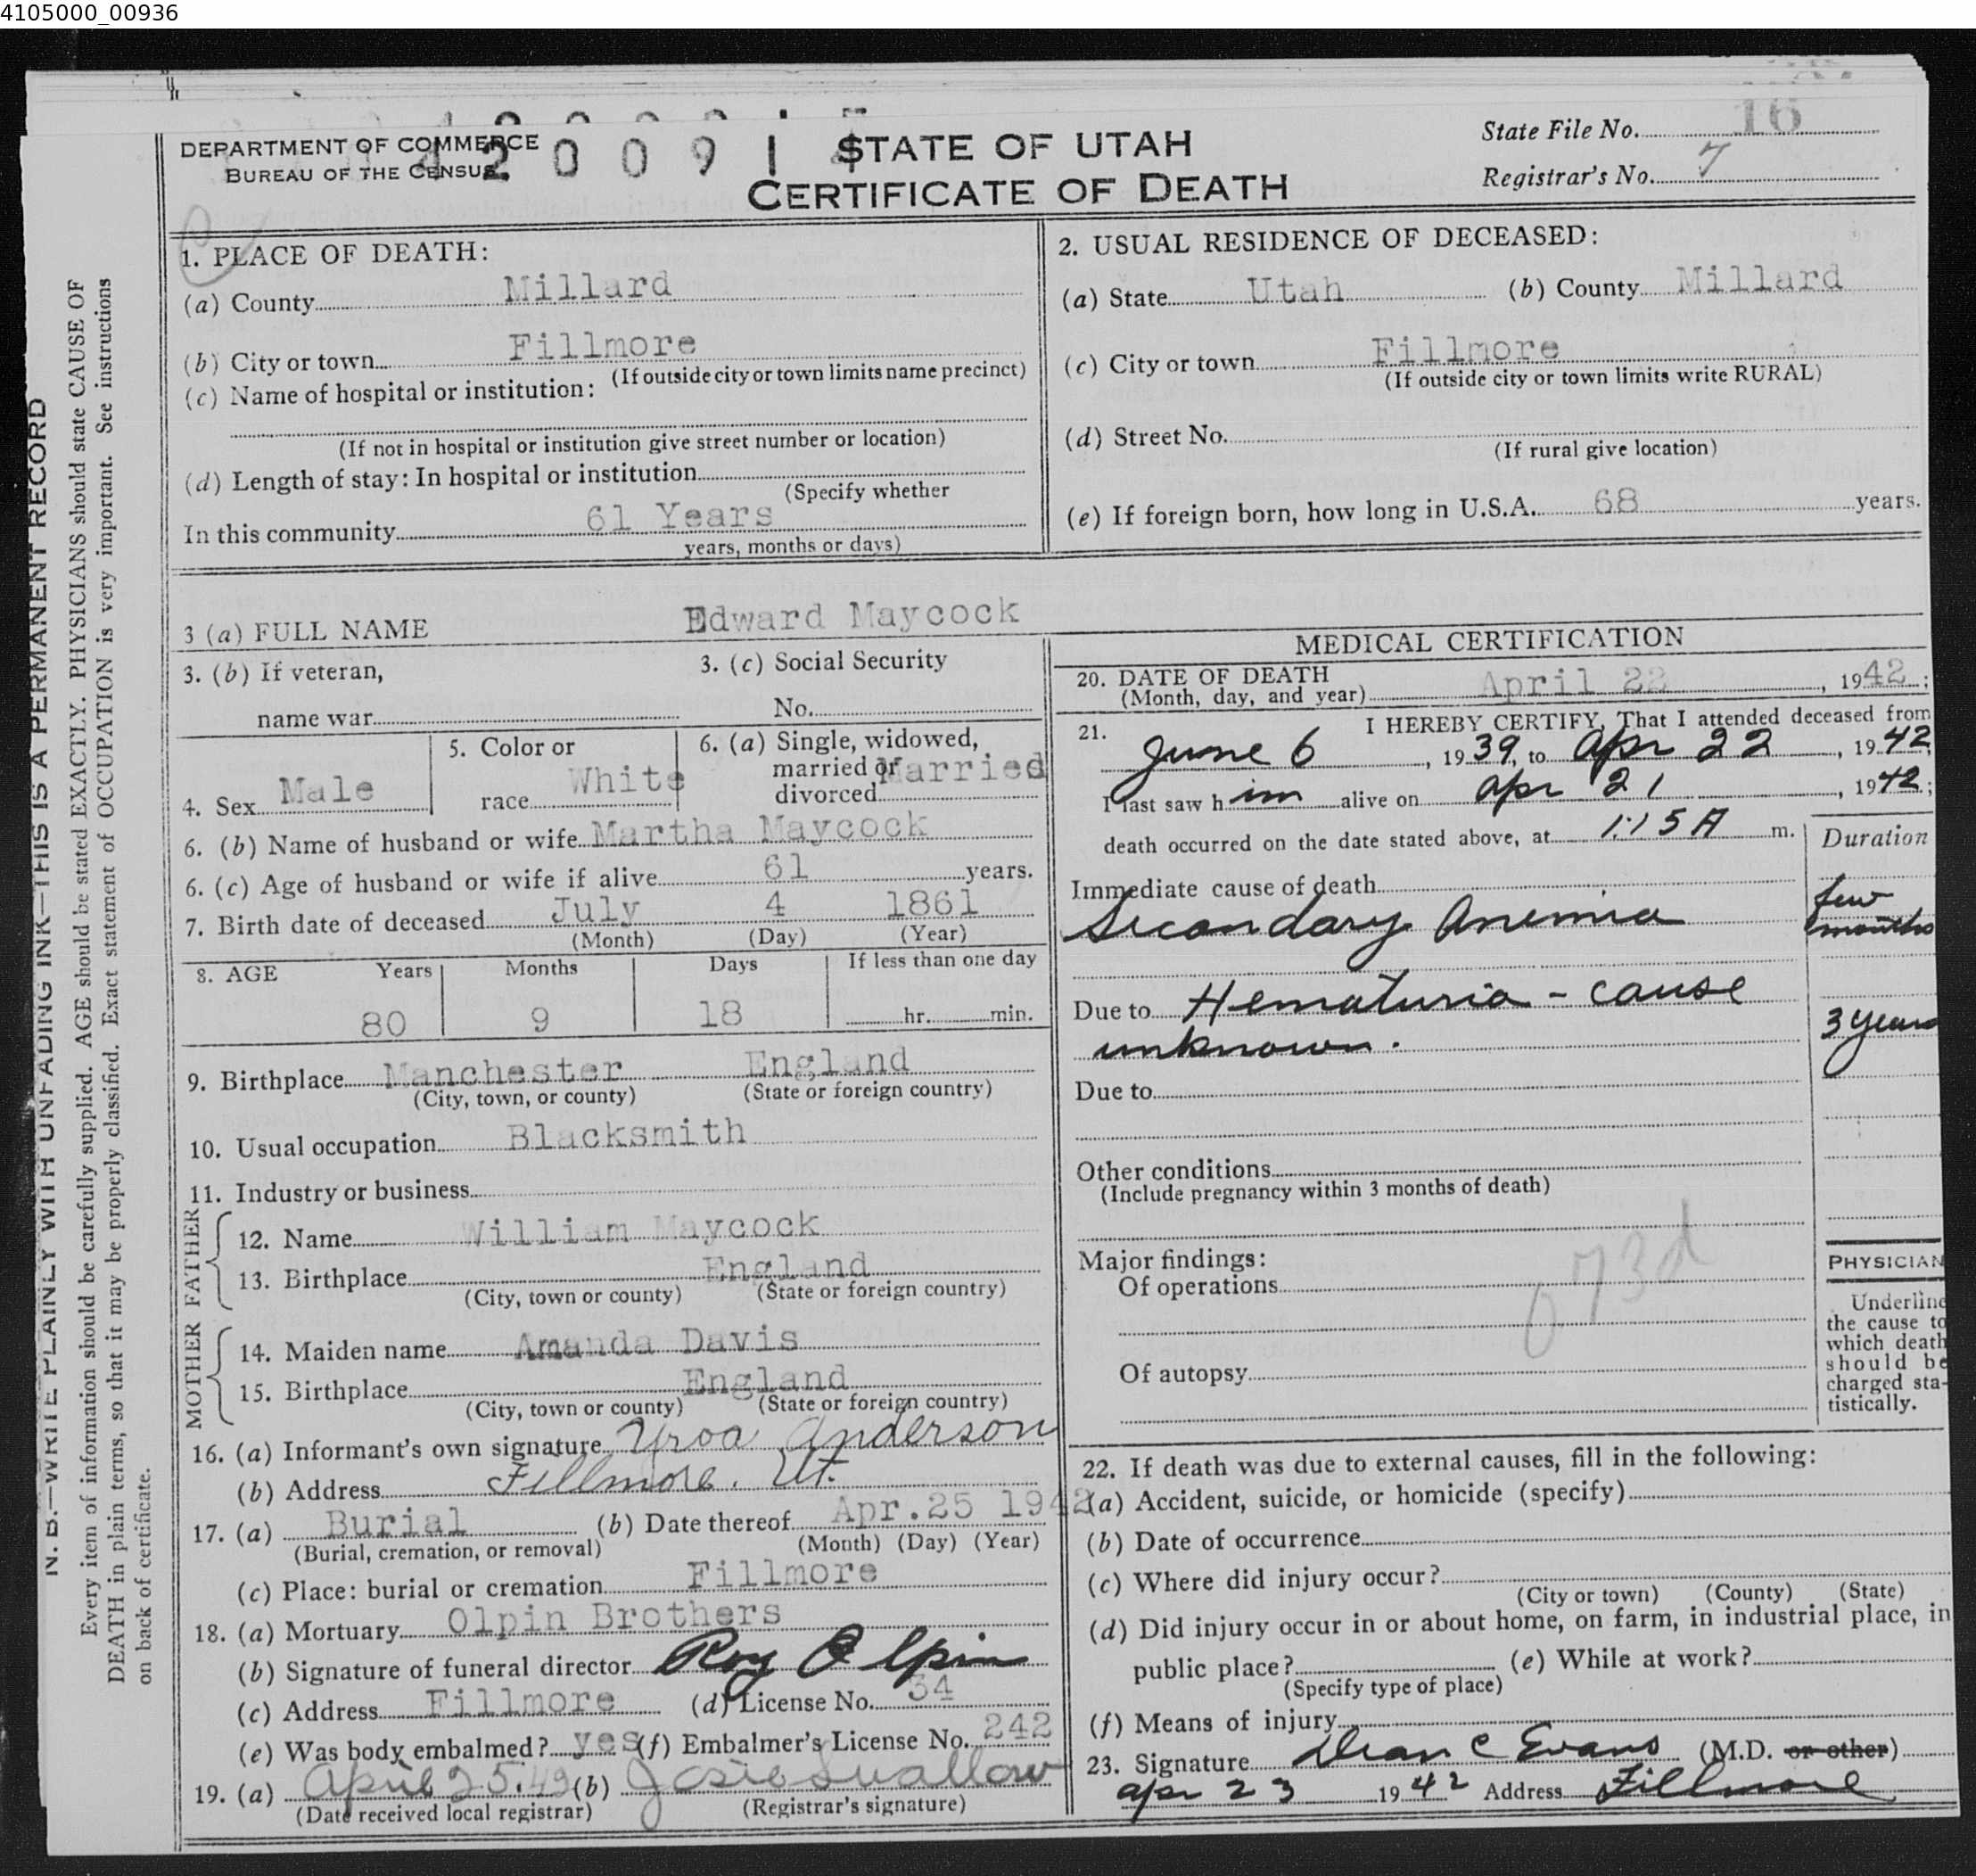 4105000_00936
DEPARTMENT OF COMMERCE
BUREAU OF THE CENSUS
4 2 0 0 9 1
STATE OF UTAH
CERTIFICATE OF DEATH
State File No. 16
Registrar's No. 7
N. B.—WRITE PLAINLY WITH UNFADING INK—THIS IS A PERMANENT RECORD
Every item of information should be carefully supplied. AGE should be stated EXACTLY. PHYSICIANS should state CAUSE OF
DEATH in plain terms, so that it may be properly classified. Exact statement of OCCUPATION is very important. See instructions
on back of certificate.
1. PLACE OF DEATH:
(a) County Millard
(b) City or town Fillmore
(If outside city or town limits name precinct)
(c) Name of hospital or institution:
(If not in hospital or institution give street number or location)
(d) Length of stay: In hospital or institution
(Specify whether
In this community 61 Years
years, months or days)
2. USUAL RESIDENCE OF DECEASED:
(a) State Utah (b) County Millard
(c) City or town Fillmore
(If outside city or town limits write RURAL)
(d) Street No.
(If rural give location)
(e) If foreign born, how long in U.S.A. 68 years.
3 (a) FULL NAME Edward Maycock
3. (b) If veteran,
name war
3. (c) Social Security
No.
4. Sex Male
5. Color or
race White
6. (a) Single, widowed,
married or
divorced Married
6. (b) Name of husband or wife Martha Maycock
6. (c) Age of husband or wife if alive 61 years.
7. Birth date of deceased July 4 1861
(Month) (Day) (Year)
8. AGE Years Months Days If less than one day
80 9 18 hr. min.
9. Birthplace Manchester England
(City, town, or county) (State or foreign country)
10. Usual occupation Blacksmith
11. Industry or business
FATHER
12. Name William Maycock
13. Birthplace England
(City, town or county) (State or foreign country)
MOTHER
14. Maiden name Amanda Davis
15. Birthplace England
(City, town or county) (State or foreign country)
16. (a) Informant's own signature Anderson
(b) Address Fillmore, Ut.
17. (a) Burial (b) Date thereof Apr. 25 1942
(Burial, cremation, or removal) (Month) (Day) (Year)
(c) Place: burial or cremation Fillmore
18. (a) Mortuary Olpin Brothers
(b) Signature of funeral director Roy Olpin
(c) Address Fillmore (d) License No. 34
(e) Was body embalmed? yes (f) Embalmer's License No. 242
19. (a) April 25. 42 (b) Josie Swallow
(Date received local registrar) (Registrar's signature)
MEDICAL CERTIFICATION
20. DATE OF DEATH
(Month, day, and year) April 22, 1942;
21. I HEREBY CERTIFY, That I attended deceased from
June 6, 1939, to Apr 22, 1942;
I last saw him alive on Apr 21, 1942;
death occurred on the date stated above, at 1:15 A m.
Duration
Immediate cause of death
Secondary Anemia
few
months
Due to Hematuria - cause
unknown.
3 years
Due to
Other conditions
(Include pregnancy within 3 months of death)
Major findings:
Of operations
073d
Of autopsy
PHYSICIAN
Underline
the cause to
which death
should be
charged sta-
tistically.
22. If death was due to external causes, fill in the following:
(a) Accident, suicide, or homicide (specify)
(b) Date of occurrence
(c) Where did injury occur?
(City or town) (County) (State)
(d) Did injury occur in or about home, on farm, in industrial place, in
public place? (e) While at work?
(Specify type of place)
(f) Means of injury
23. Signature Dean C Evans (M.D. or other)
Apr 23 1942 Address Fillmore